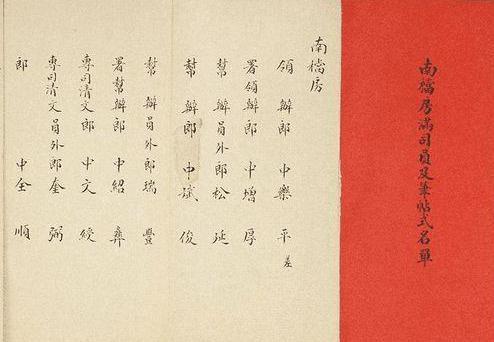 南檔房滿司員及筆帖式名單
南檔房
領辦郎中樂平差
署領辦郎中增厚
幫辦員外郎松延
幫辦郎中斌俊
幫辦員外郎瑞豐
署幫辦郎中紹彝
專司清文郎中文綬
專司清文員外郎奎弼
郎中全順